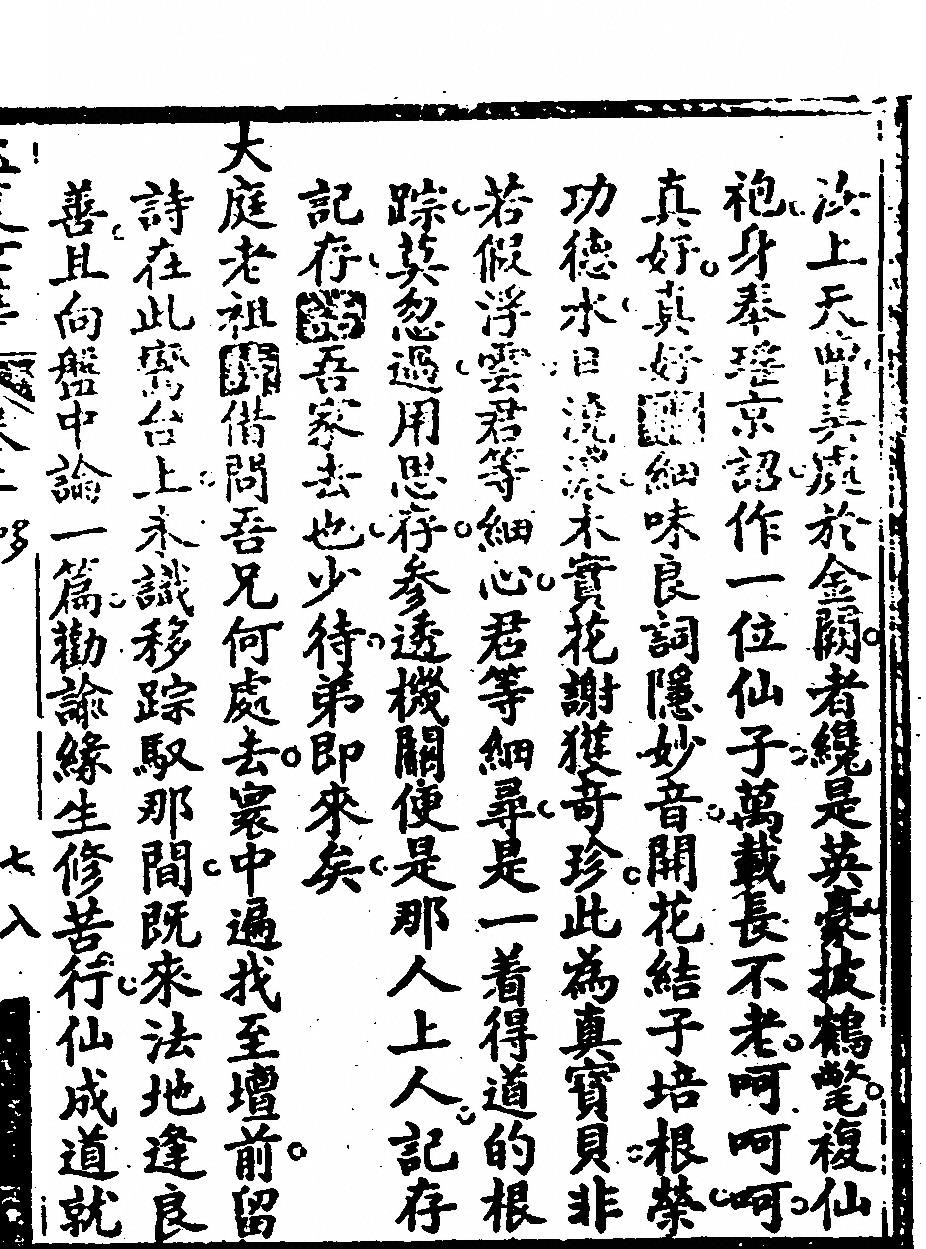 汝上天曾英○於金闕者纔是英豪披鶴氅複仙
袍身奉瑤京詔作一位仙子萬載長不老呵呵呵
真好真好細味良詞隱妙音開花結子培根榮
功德水日澆灌木實花謝獲奇珍此為真寶貝非
若假浮雲君等細心君等細尋是一着得道的根
踪莫忽過用思存參透機關便是那人上人記存
記存吾家去也少待弟即來矣
大庭老祖借問吾兄何處去寰中遍找至壇前留
詩在此鸞台上永識移踪馭那間既來法地逢良
善且向盤中論一篇勸諭緣生修苦行仙成道就
七八